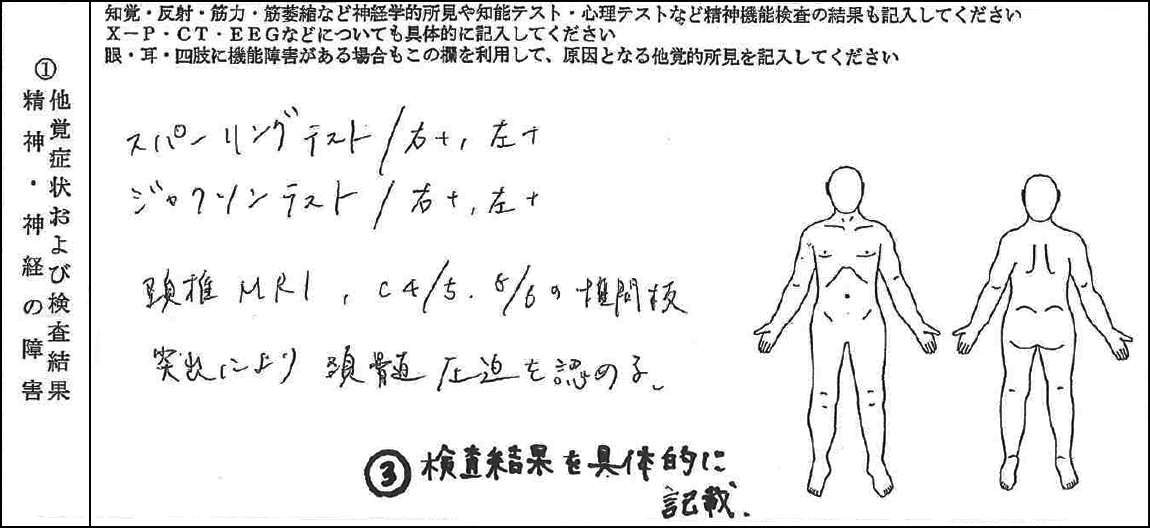 ① 精神・神経の障害
他覚症状および検査結果
知覚・反射・筋力・筋萎縮など神経学的所見や知能テスト・心理テストなど精神機能検査の結果も記入してください
X－P・CT・EEGなどについても具体的に記入してください
眼・耳・四肢に機能障害がある場合もこの欄を利用して、原因となる他覚的所見を記入してください
スパーリングテスト/右+,左+
ジャクソンテスト/右+,左+
頚椎MRI,C4/5.5/6の椎間板
突出により頚髄圧迫を認める。
③検査結果を具体的に
記載.